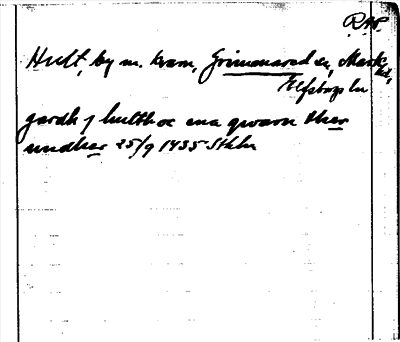 RAP.
Hult, by m. kvarn, Grimmared sn, Marks
hd,
Elfsborgs ln
gardh j hulth oc ena qwarn ther
undher 25/9 1435 Sthlm